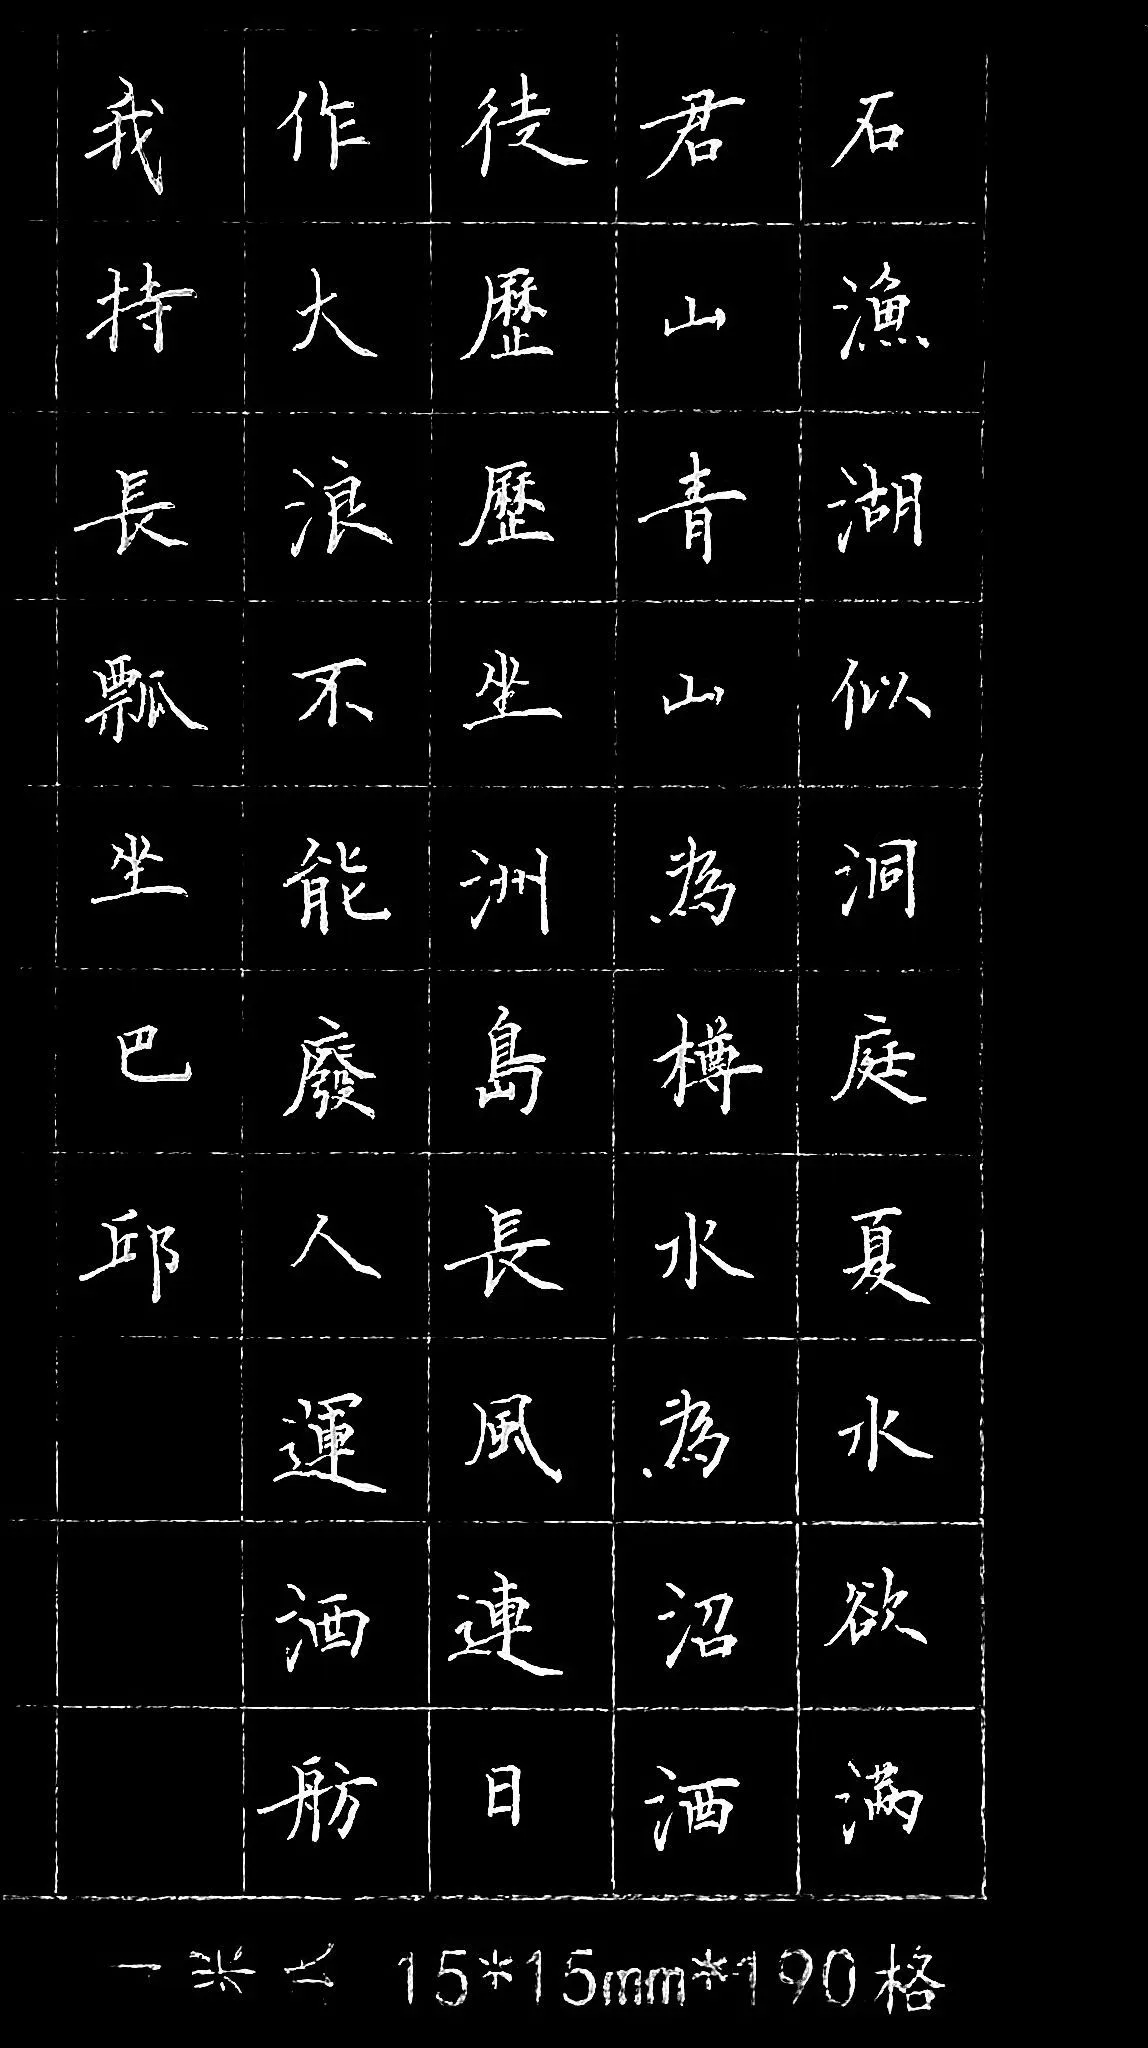 石漁湖似洞庭夏水欲滿
君山青山為樽水為沼酒
徒歷歷坐洲島長風連日
作大浪不能廢人運酒舫
我持長瓢坐巴邱
15*15mm*190格